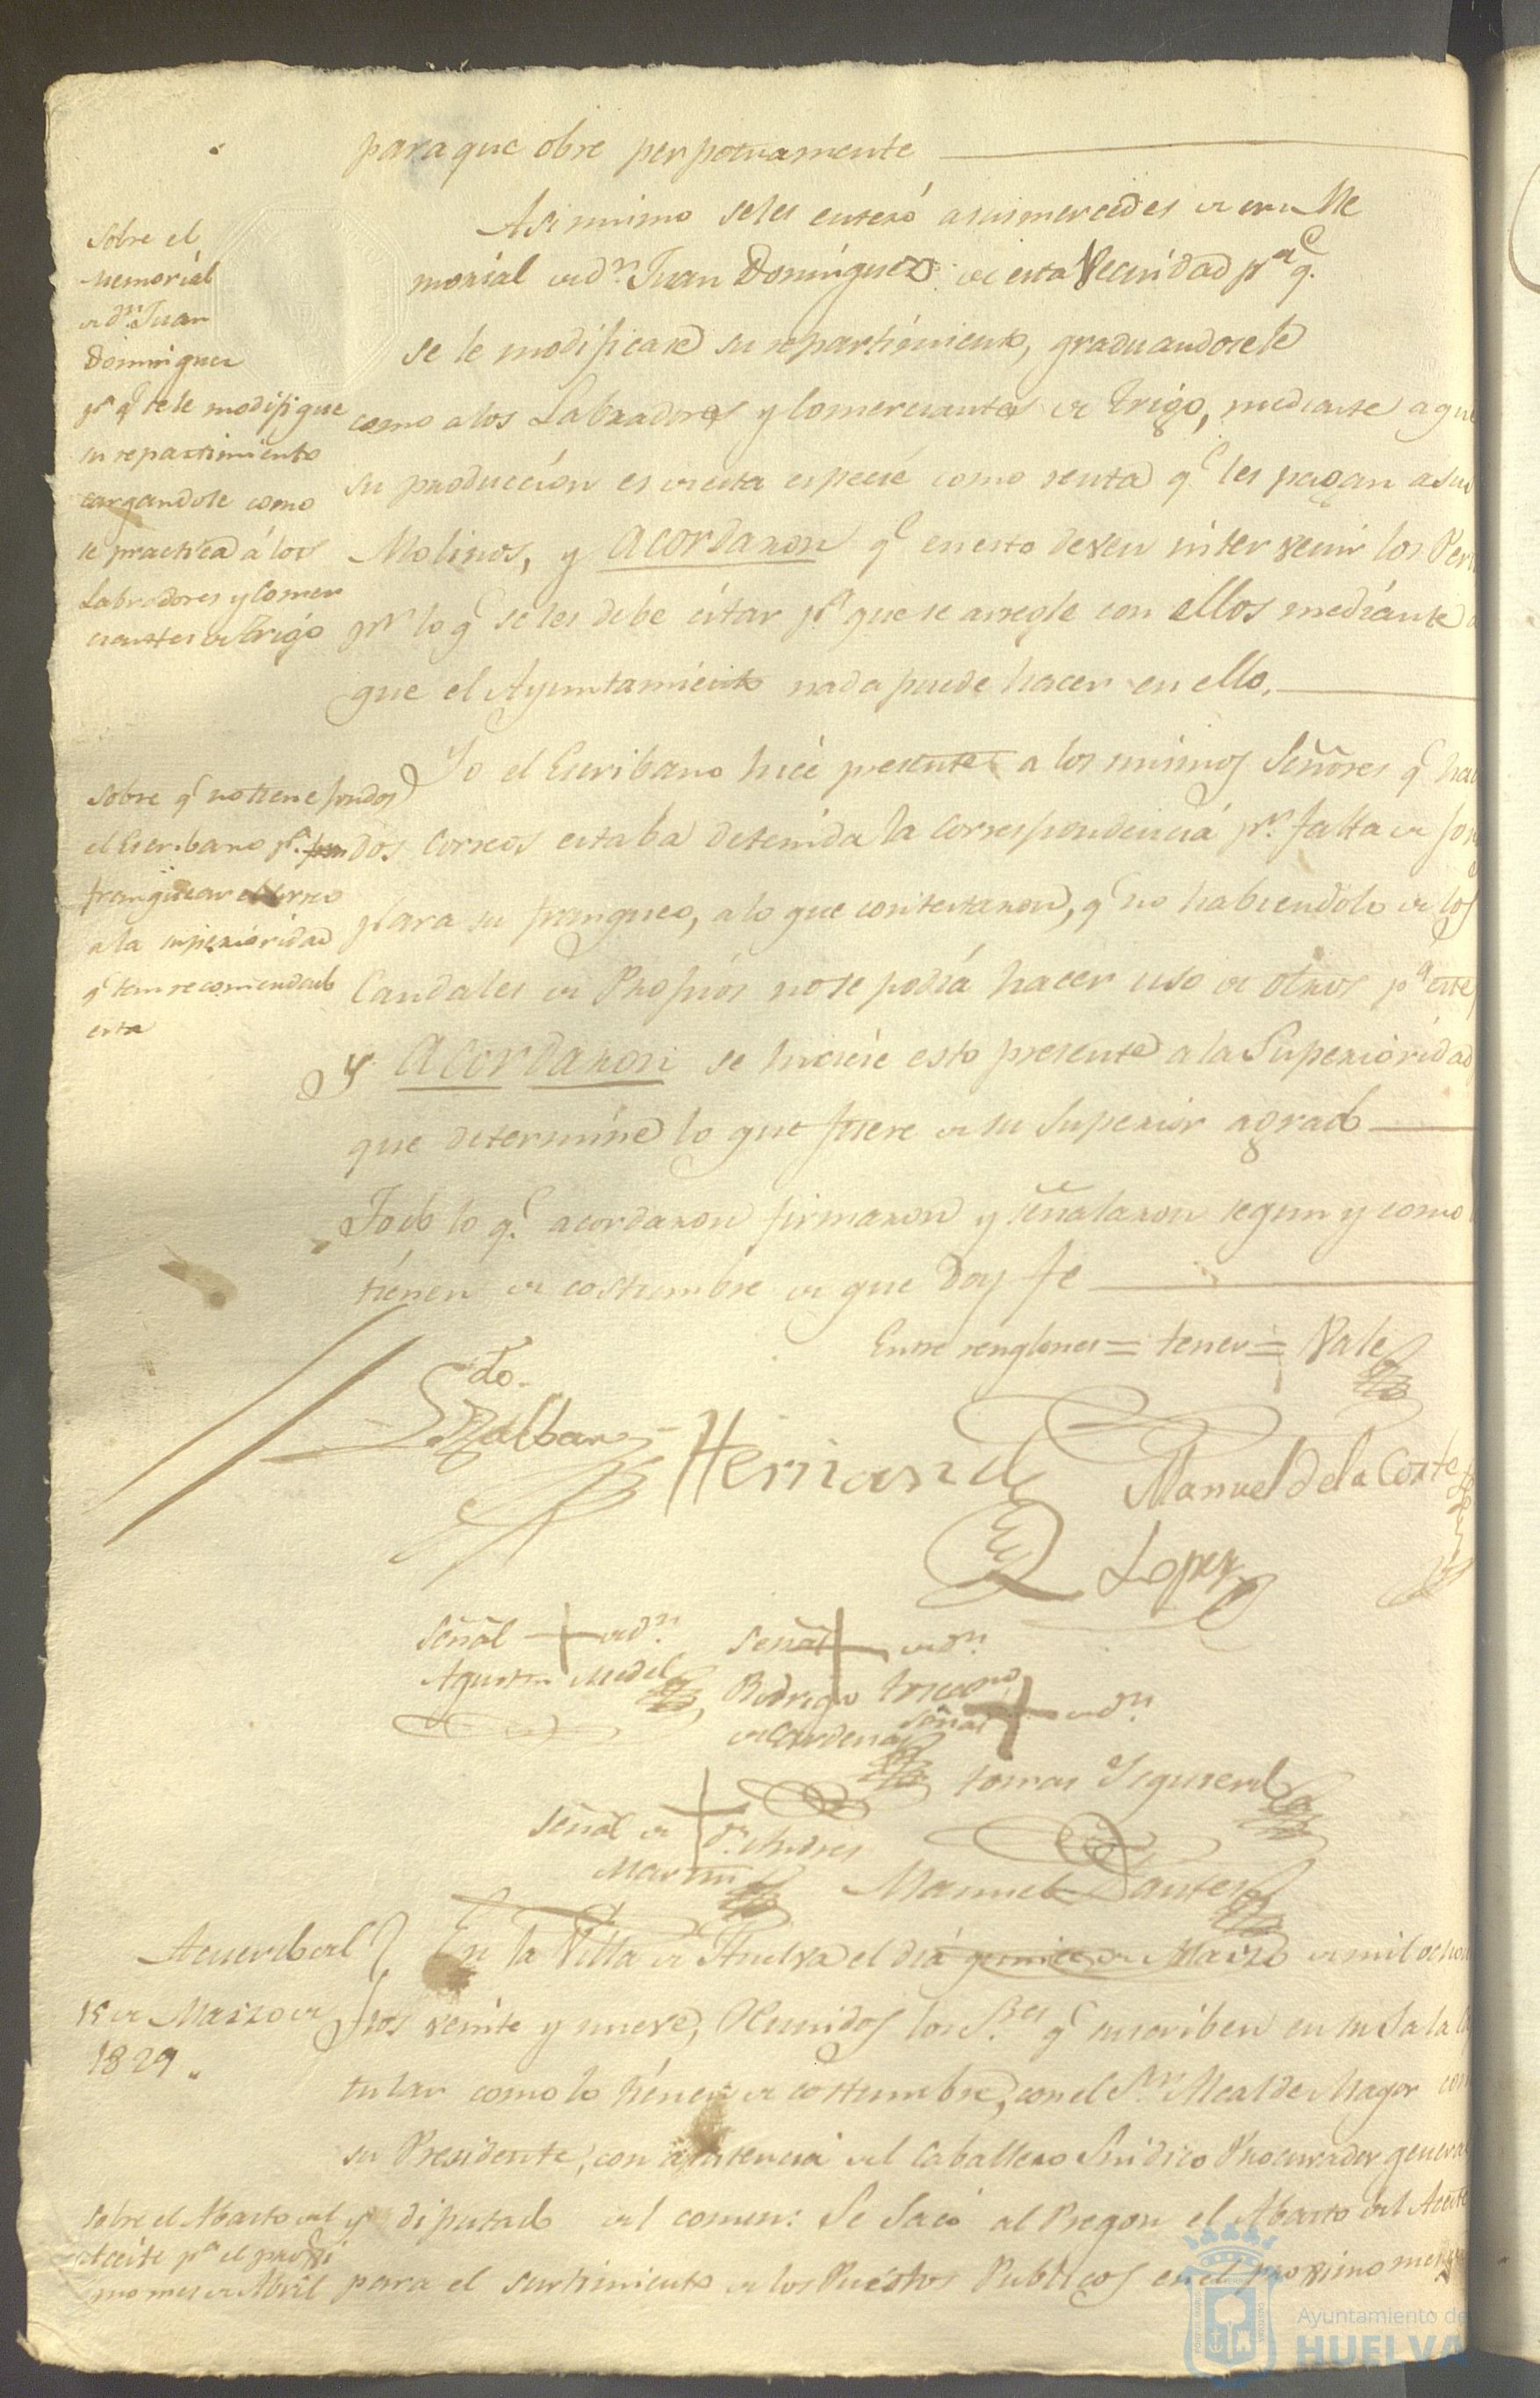 para que obre perpetuamente
Sobre el
Memorial
de dn. Juan
Dominguez
pa. q.e se le modifique
su repartimiento
cargandole como
se practica á los
Labradores y Comer
ciantes de Trigo
Asi mismo se les enteró a sus mercedes de un Me
morial de dn. Juan Dominguez de esta Vecindad pa. q.e
se le modificase su repartimiento, graduandosele
como a los Labradores y Comerciantes de Trigo, mediante a que
su producción es de esta especie como renta q.e les pagan a sus
Molinos, y acordaron q.e en esto deven intervenir los
pr. lo q.e se les debe citar pa. que se arregle con ellos mediante a
que el Ayuntamiento nada puede hacer en ello.
Sobre q.e no tiene fondos
el Escribano pa.
franquear el Correo
a la superioridad
q.e
esta
Yo el Escribano hice presente a los mismos Señores q.e hac
dos Correos estaba detenida la correspondencia pr. falta de fon
para su franqueo, a lo que contestaron, q.e no habiendolo de los
Caudales de Propios no se podia hacer uso de otros pa. este
y acordaron se hiciese esto presente a la Superioridad
que determine lo que fuere de su Superior agrado
Todo lo q.e acordaron firmaron y señalaron segun y como
tienen de costumbre de que Doy fe
Entre renglones = tener = Vale
Ldo.
Hernand
Manuel de la Corte
Lopez
Señal + de dn.
Agustin Medel
Señal + de dn.
Rodrigo
de Cardenas
Señal + de dn.
tomas Ysquierdo
Señal de + dn. Andres
Martin
Manuel
Acuerdo del
15 de Marzo de
1829.
En la Villa de Huelva el dia quince de Marzo de mil ocho
tos veinte y nueve, Reunidos los S.res q.e suscriben en su Sala Ca
tular como lo tienen de costumbre, con el S.or Alcalde Mayor com
su Presidente, con asistencia del Caballero Sindico Procurador general
y diputado del comun: Se Sacó al Pregon el Abasto del Aceite
para el surtimiento de los Puestos Publicos en el proximo mes
Sobre el Abasto del
Aceite pa. el proxi
mo mes de Abril
Ayuntamiento de
HUELVA